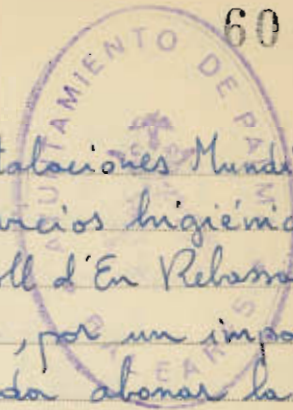 60
AYUNTAMIENTO DE PALMA
talaciones Mundi
vicios higiénic
oll d'En Rebassa
, por un impo
da abonar la
BALEARES